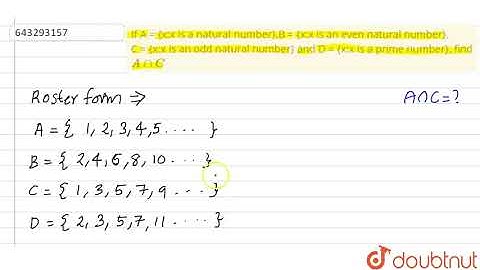 643293157
If A = {x:x is a natural number},B = {x:x is an even natural number}.
C = {x:x is an odd natural number} and D = {x:x is a prime number}, find
A ∩ C
Roster form ⇒
A∩C=?
A = { 1, 2, 3, 4, 5 .... }
B = { 2, 4, 6, 8, 10 ... }
C = { 1, 3, 5, 7, 9 ... }
D = { 2, 3, 5, 7, 11 .... }
doubtnut